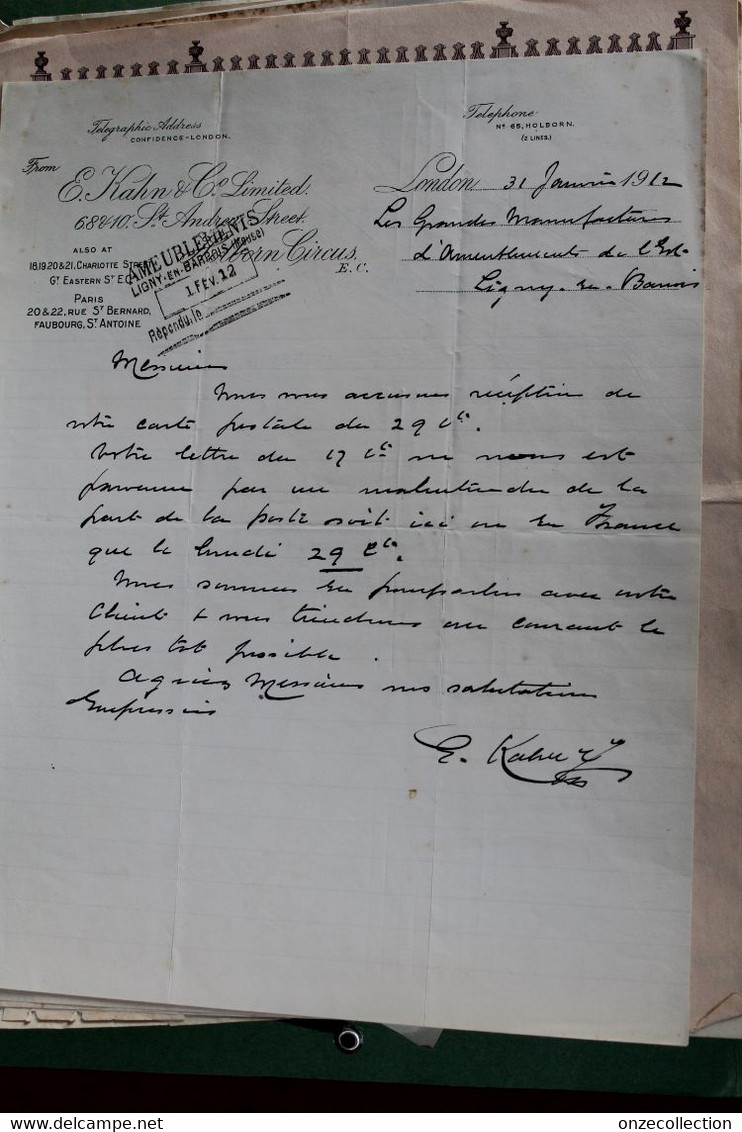 Telegraphic Address
CONFIDENCE-LONDON.
Telephone
Nº 65, HOLBORN.
(2 LINES.)
From
E. Kahn & Cº Limited.
6.8 & 10. St. Andrew Street.
Holborn Circus.
E.C.
ALSO AT
18,19,20 & 21, CHARLOTTE STREET
GT EASTERN ST E.C.
PARIS
20 & 22, RUE ST BERNARD,
FAUBOURG, ST ANTOINE
AMEUBLEMENTS
LIGNY-EN-BARROIS (Meuse)
1. FÉV. 12
Répondu le
London, 31 Janvier 1912
Les Grandes Manufactures
d'Ameublements de l'Est
Ligny-en-Barrois
Messieurs
Nous vous accusons réception de
votre carte postale du 29 ct.
Votre lettre du 17 ct ne nous est
parvenue par un malentendu de la
part de la poste soit ici ou en France
que le lundi 29 ct.
Nous sommes en pourparlers avec notre
Client + vous tiendrons au courant le
plus tot possible.
Agréez Messieurs nos salutations
Empressées
E. Kahn
onzecollection